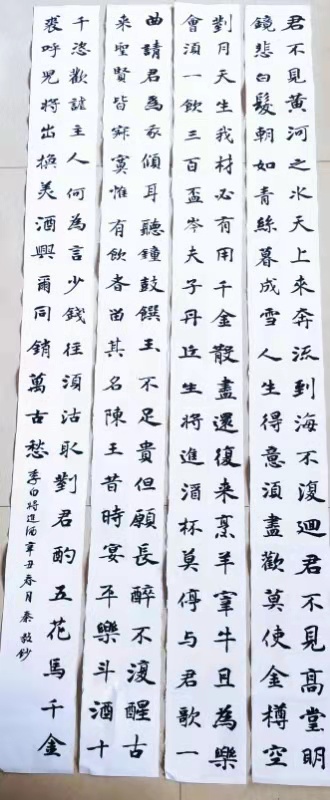 君不見黃河之水天上來奔流到海不復迴君不見高堂明
鏡悲白髮朝如青絲暮成雪人生得意須盡歡莫使金樽空
對月天生我材必有用千金散盡還復来烹羊宰牛且為樂
會須一飲三百盃岑夫子丹丘生將進酒杯莫停与君歌一
曲請君為我傾耳聽鐘鼓饌玉不足貴但願長醉不復醒古
来聖賢皆寂寞惟有飲者留其名陳王昔時宴平樂斗酒十
千恣歡謔主人何為言少錢徑須沽取對君酌五花馬千金
裘呼兒將出換美酒與爾同銷萬古愁
李白將進酒辛丑春月秦鈔